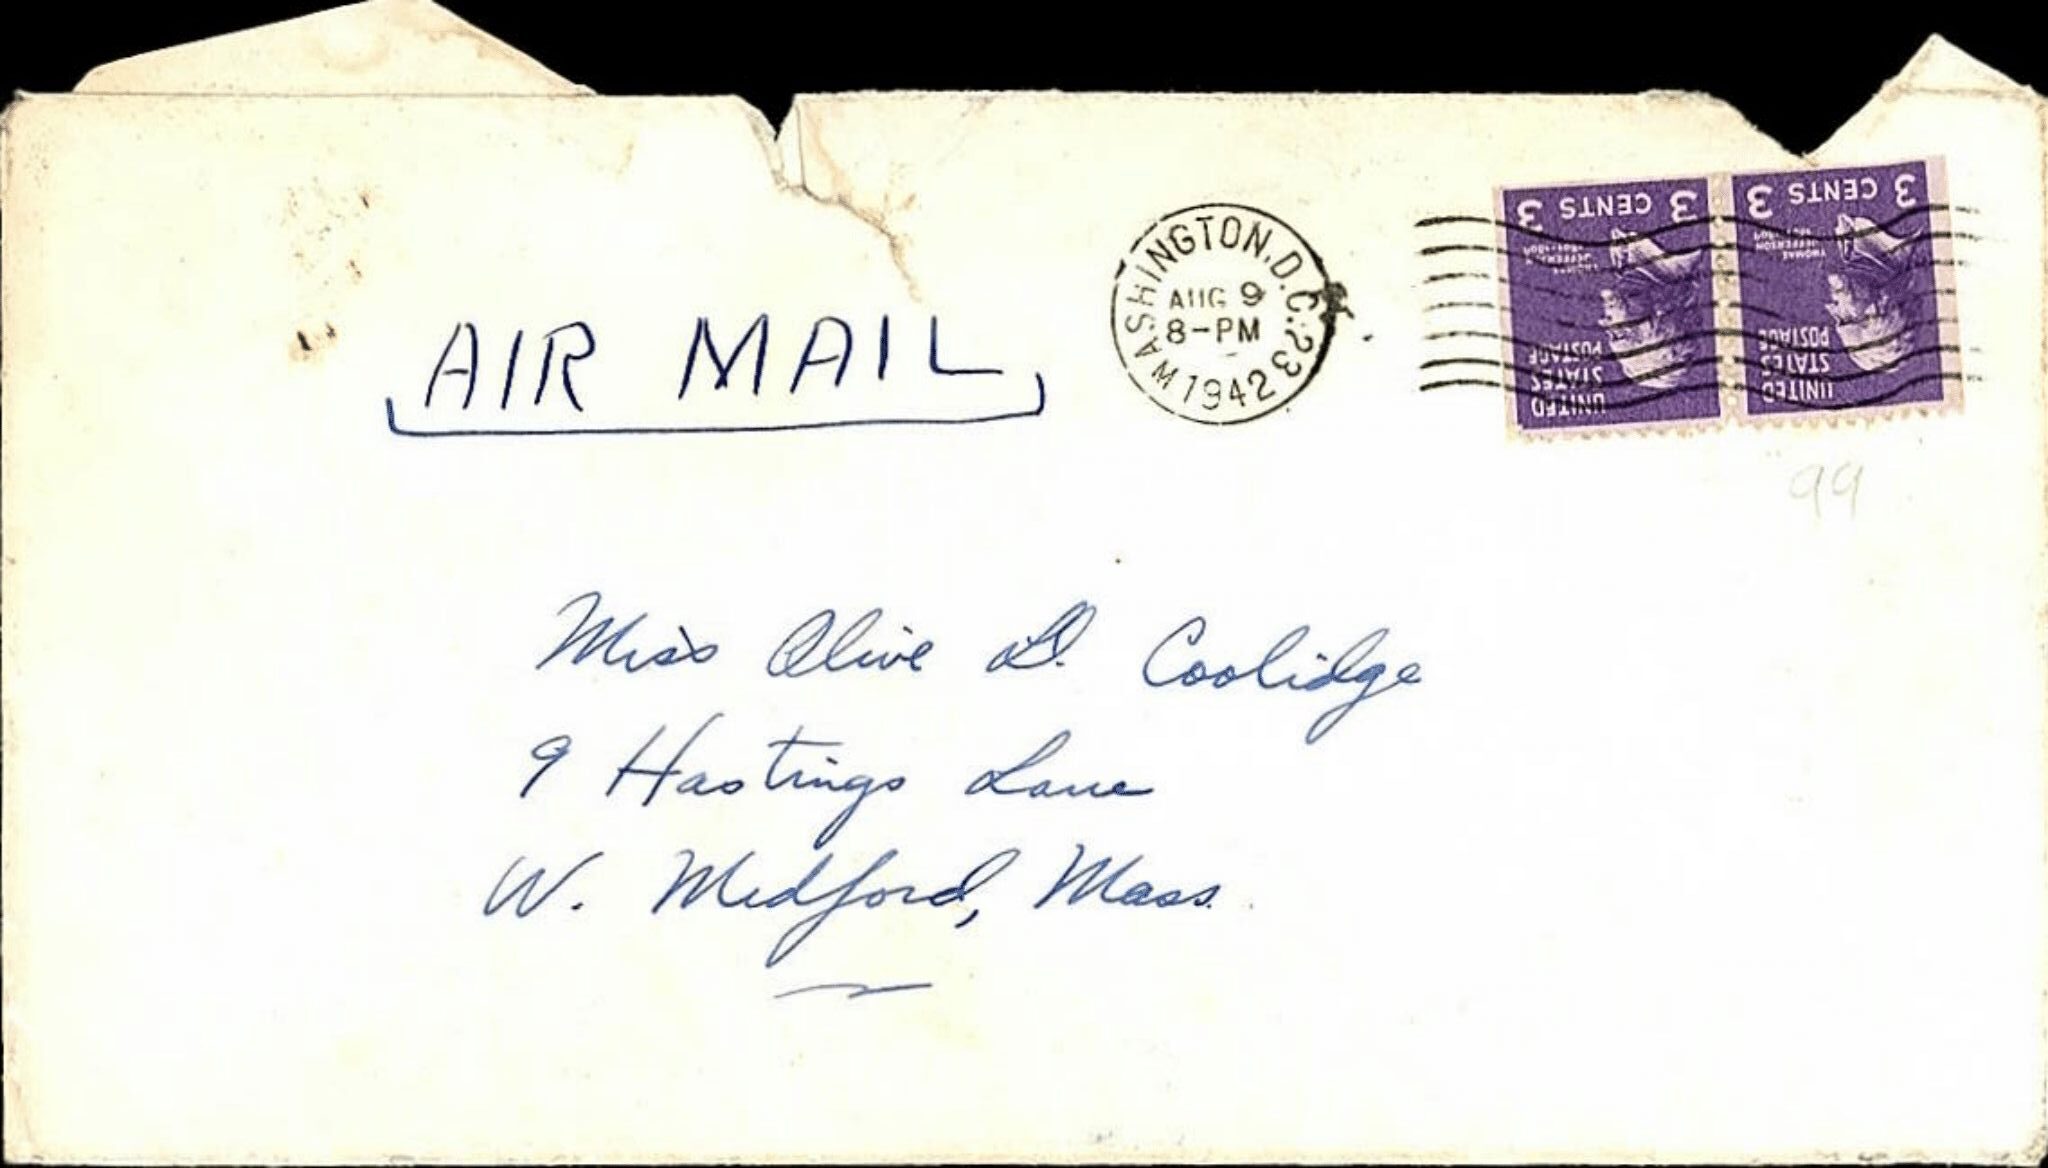 AIR MAIL
WASHINGTON, D.C. 23
AUG 9
8-PM
1942
3 CENTS 3
THOMAS
JEFFERSON
UNITED
STATES
POSTAGE
3 CENTS 3
THOMAS
JEFFERSON
UNITED
STATES
POSTAGE
99
Miss Olive D. Coolidge
9 Hastings Lane
W. Medford, Mass.